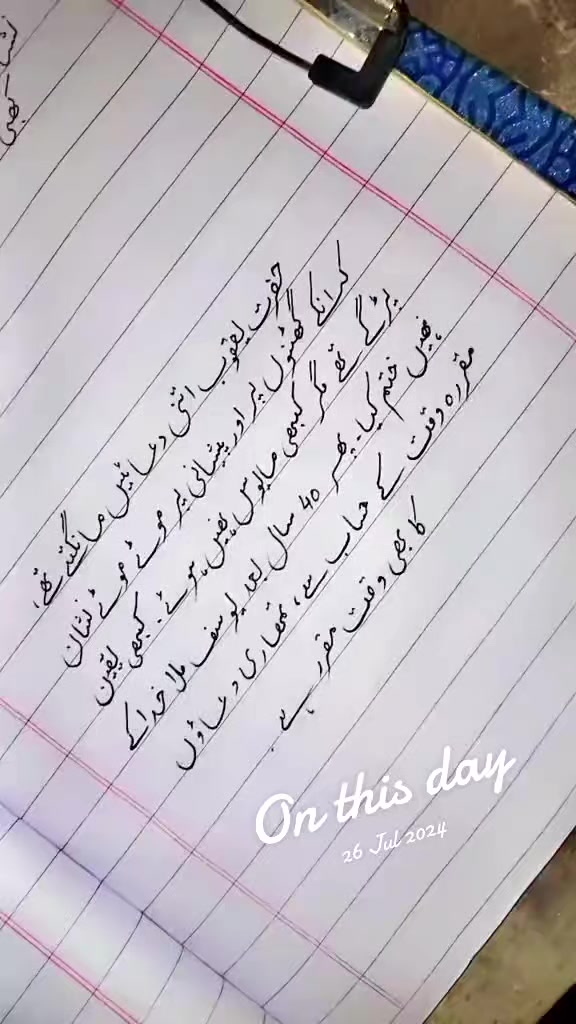 حضرت یعقوب اتنی دعائیں مانگتے تھے،
کہ انکے گھٹنوں پر اور پیشانی پر موٹے موٹے نشان
پڑگے تھے مگر کبھی مایوس نہیں ہوئے۔ کبھی یقین
نہیں ختم کیا۔ پھر 40 سال بعد یوسف ملا خدا کے
مقررہ وقت کے حساب سے، تمھاری دعاؤں
کا بھی وقت مقرر ہے۔
On this day
26 Jul 2024